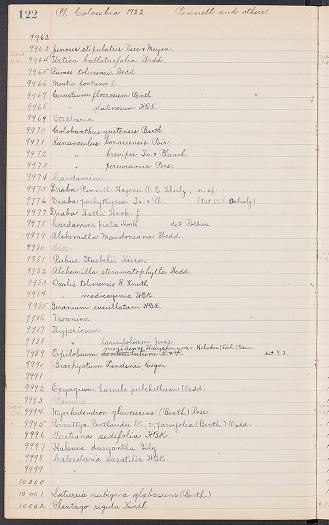 122 Pl. Colombia 1922 Pennell and others
9962
9963 Juncus stipulatus Nees & Meyen
9964 Urtica ballotaefolia Wedd.
9965 Rumex tolimensis Wedd.
9966 Montia fontana L.
9967 Cerastium floccosum Benth
9968 " H.B.K.
9969 Stellaria
9970 Colobanthus quitensis Bartl.
9971 Ranunculus bonariensis Poir.
9972 " brevipes Tr. & Planch
9973 " peruvianus Pers.
9974 Cardamine
9975 Draba Pennell-Hazenii O.E. Schulz, n. sp.
9976 Draba pachythyrsa Tr. & Pl. (Det O.E. Schulz)
9977 Draba Hallii Hook. f.
9978 Cardamine picta Hook
9979 Alchemilla Mandoniana Wedd.
9980
9981 Rubus Stuebelii Hieron
9982 Alchemilla Wedd
9983 Oxalis tolimensis R. Knuth
9984 " medicaginea H.B.K.
9985 Geranium cucullatum H.B.K.
9986 Monnina
9987 Hypericum
9988 " laricifolium Juss.
9989 Epilobium denticulatum R. & P.
9990 Brachyotum Lindenii Cogn.
9991
9992 Eryngium humile Wedd.
9993
9994 Myrrhidendron glaucescens (Benth.) Rose
9995 Pernettya Pentlandii DC. (Benth.) Wedd.
9996 Gentiana sedifolia H.B.K.
9997 Halenia dasyantha Gilg
9998 Calceolaria H.B.K.
9999 "
10000
10001 Satureia nubigena glabrescens (Benth.)
10002 Plantago rigida Kunth